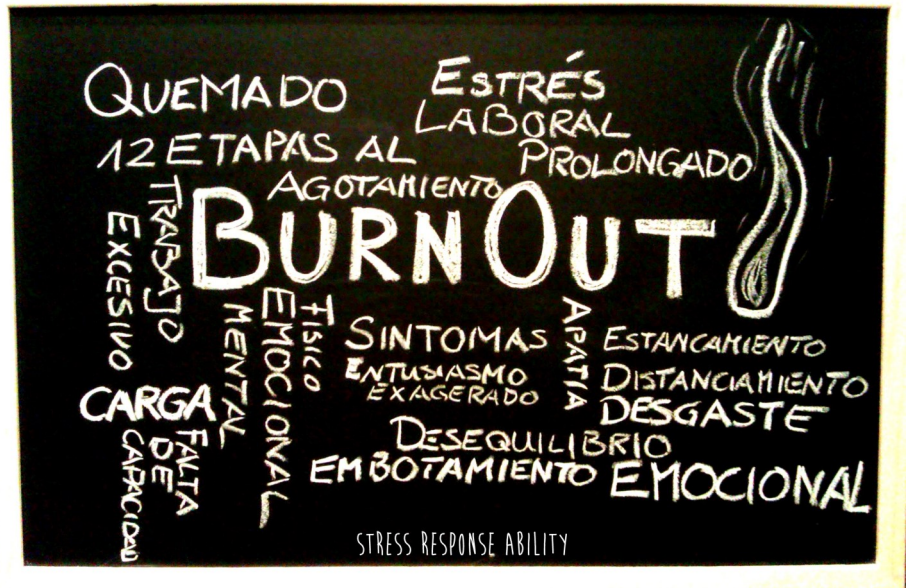 QUEMADO
ESTRÉS
LABORAL
PROLONGADO
12 ETAPAS AL
AGOTAMIENTO
BURNOUT
TRABAJO
EXCESIVO
MENTAL
EMOCIONAL
FISICO
SINTOMAS
ENTUSIASMO
EXAGERADO
APATIA
ESTANCAMIENTO
DISTANCIAMIENTO
DESGASTE
EMOCIONAL
CARGA
FALTA
DE
CAPACIDAD
DESEQUILIBRIO
EMBOTAMIENTO
STRESS RESPONSE ABILITY